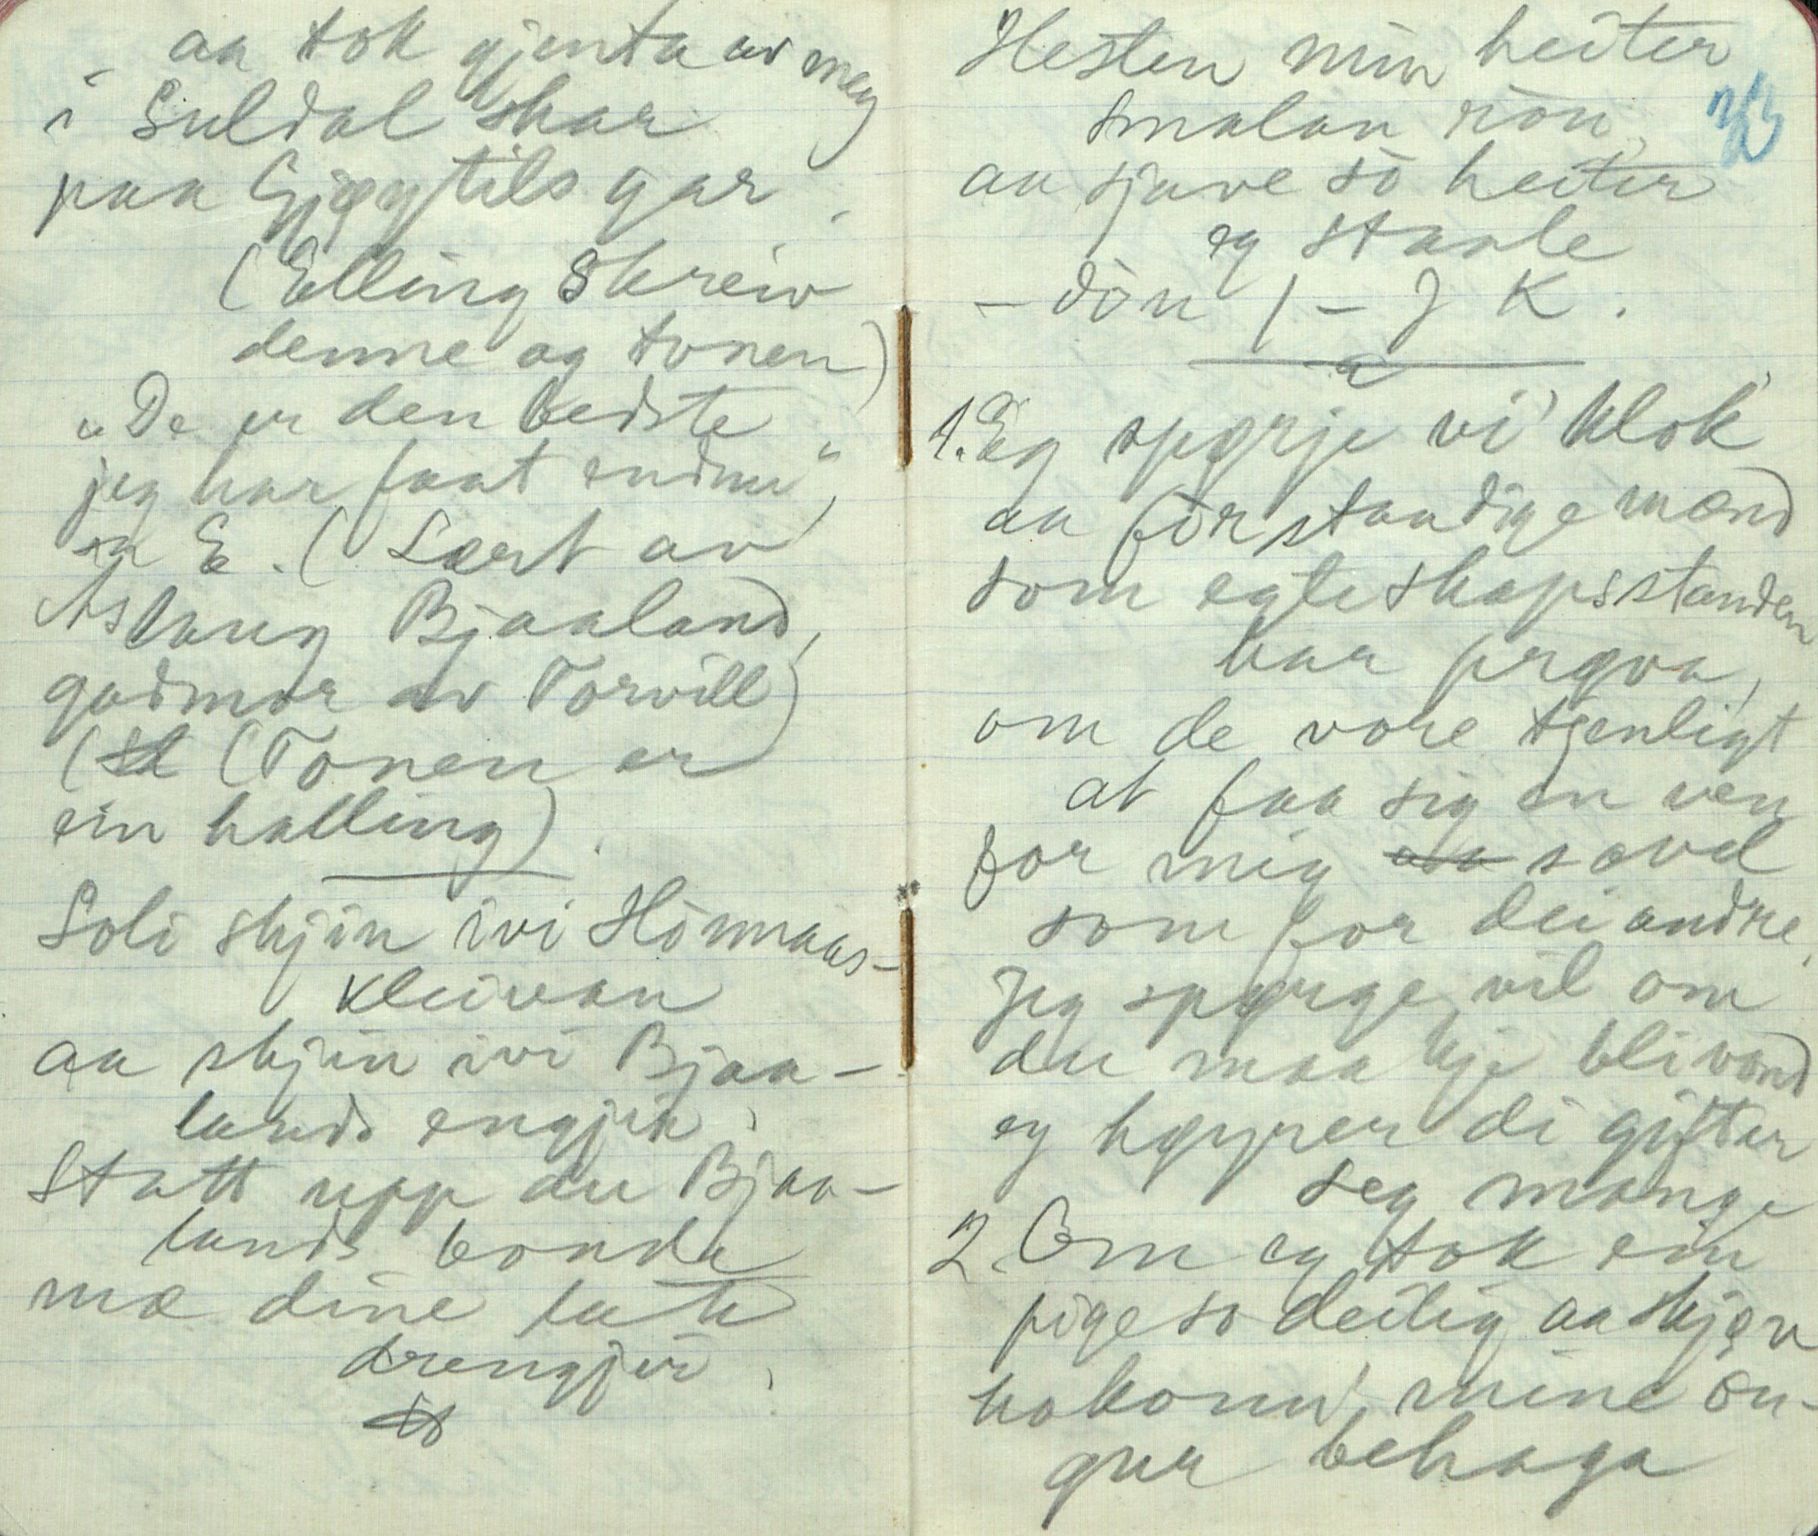 aa tok gjenta av meg
i Suldal skar
paa Gjøytils gar.
(Elling skreiv
denne og tonen)
"De er den bedste
jeg har faat endnu",
sa E. (Lært av
Aslaug Bjaaland,
gudmor av Torvill)
(Tonen er
ein halling).
Soli skjin ivi Hömmaas-
kleivan
aa skjin ivi Bjaa-
lands engjin,
Statt upp du Bjaa-
lands bonde
mæ dine late
drengjir.
Hesten min heiter
33
smalan rön,
aa sjave sò heiter
eg staale
- dòn / - J K.
1. Eg spørje vi' klok'
aa fòrstandige mænd
som egteskapsstanden
har prøva,
om de vore tjenligt
at faa sig en ven
for mig savel
som for dei andre,
Jeg spørge vil om
du maa kje bli vond
eg høyrer di gifter
seg mange
2. Om eg tok ein
pige so deilig aa skjøn
ho konn' mine òu-
gur behaga